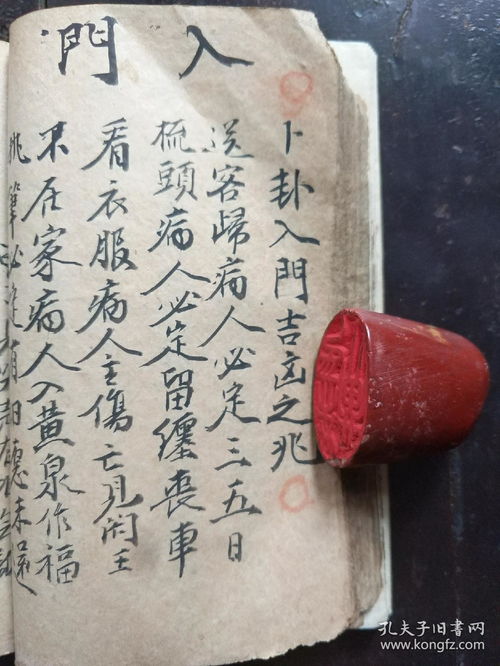 入門
卜卦入門吉凶之兆
送客歸病人必定三五日
梳頭病人必定留纏喪車
看衣服病人主傷亡見閑王
不居家病人入黄泉作福
孔夫子旧书网
www.kongfz.com